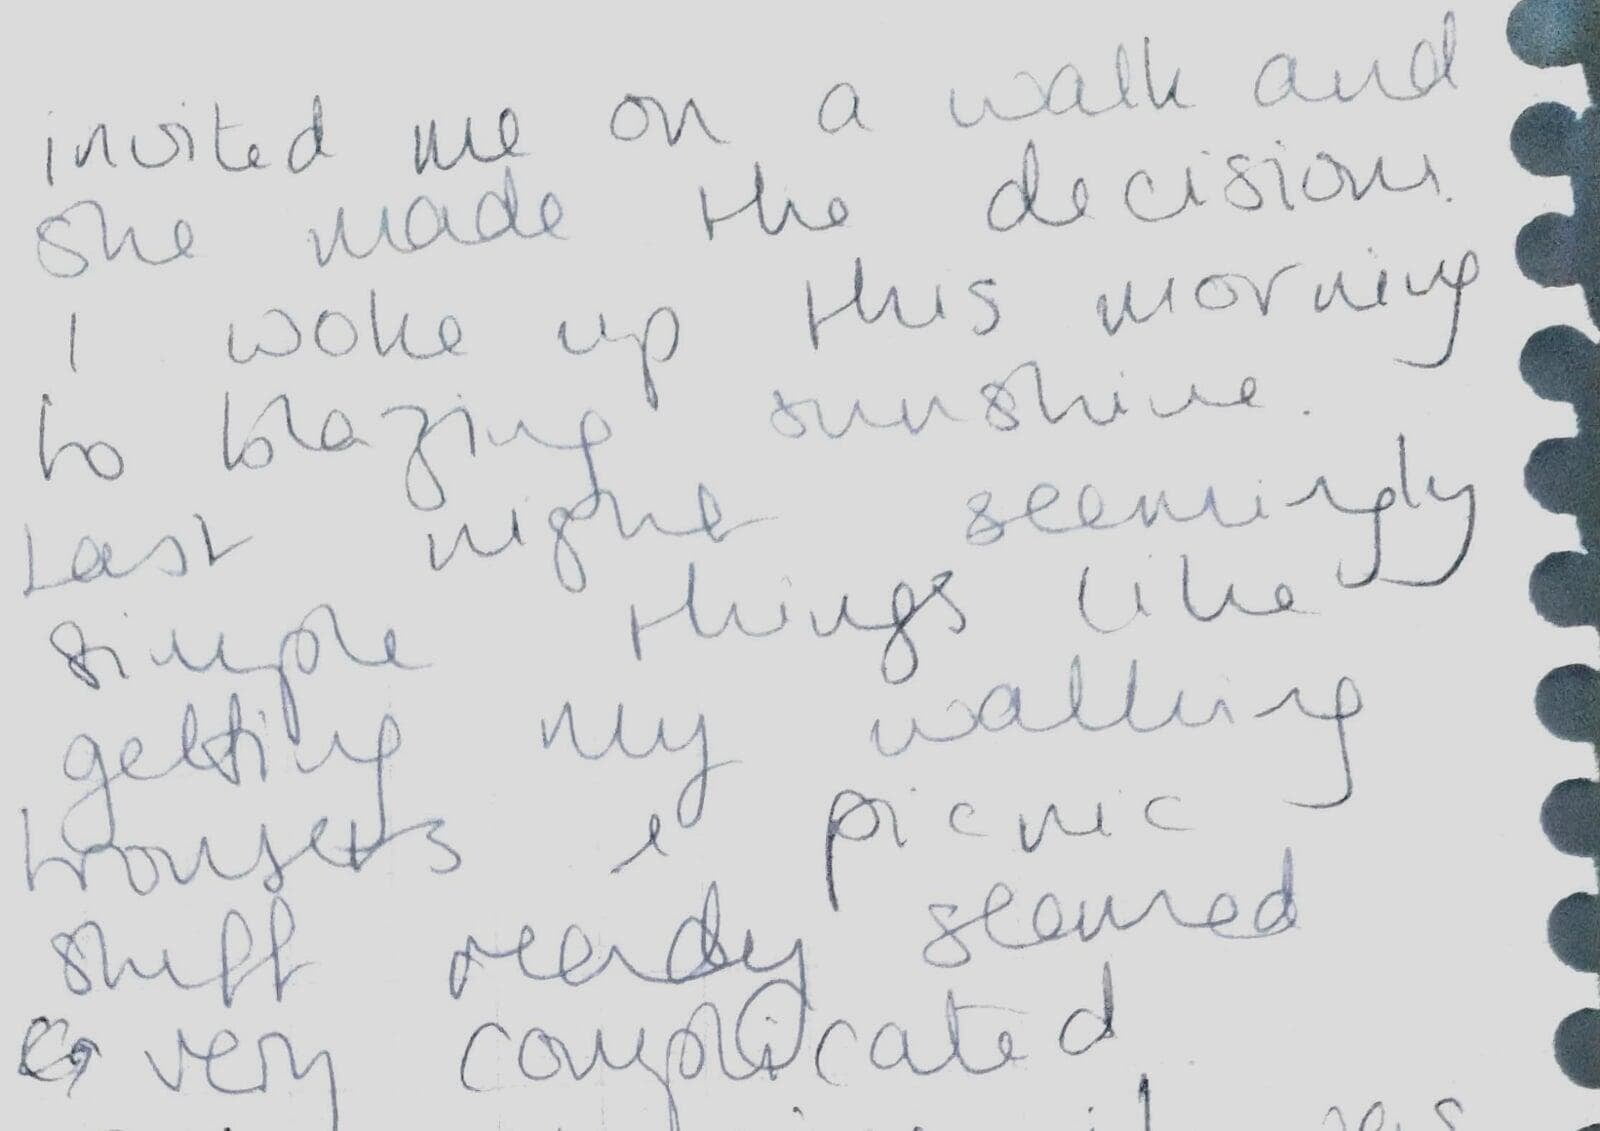 invited me on a walk and
she made the decision.
I woke up this morning
to blazing sunshine.
Last night seemingly
simple things like
getting my walking
trousers & picnic
stuff ready seemed
very complicated